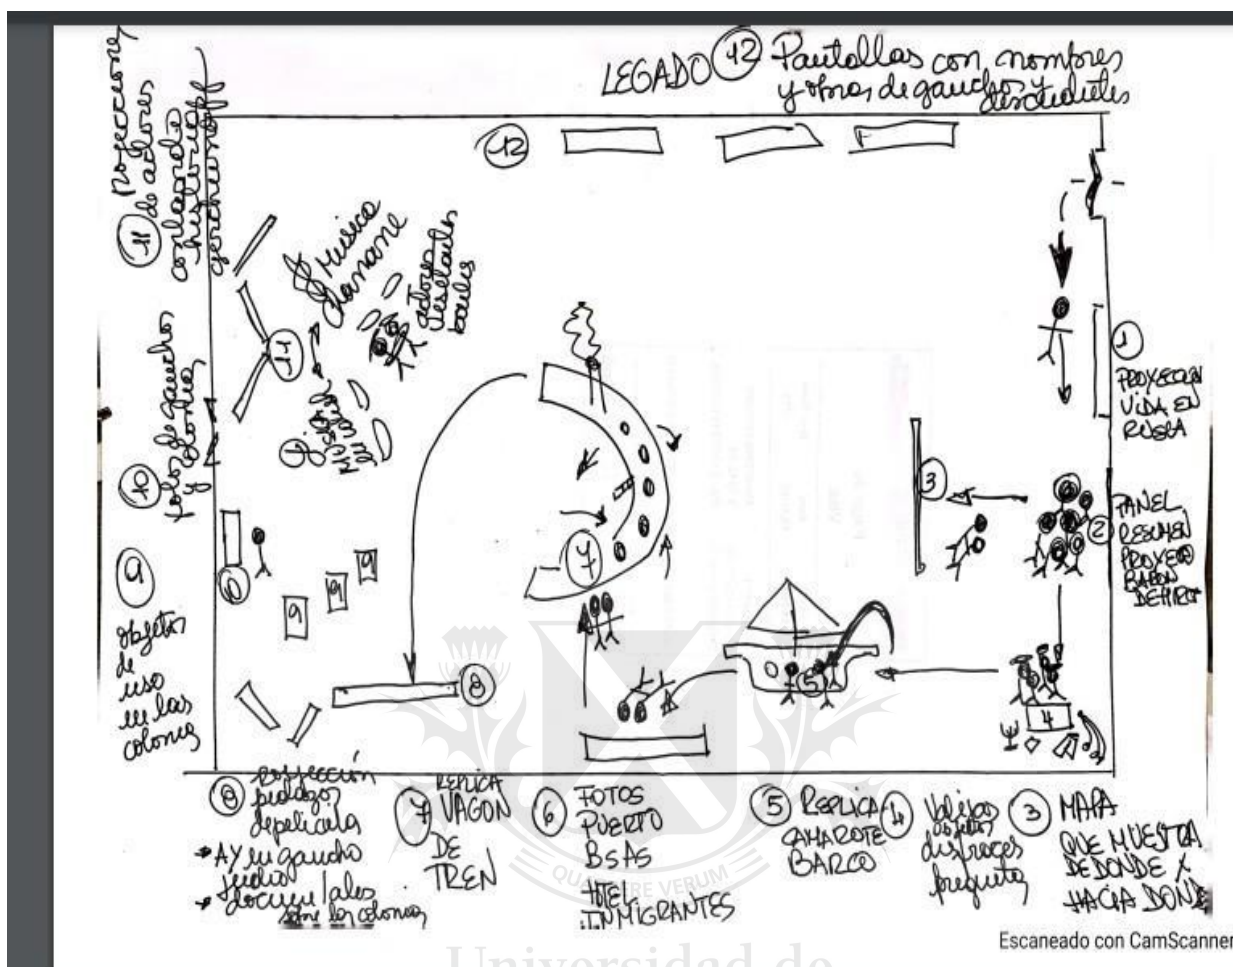 LEGADO 12 Pantallas con nombres
y obras de gauchos
12
11 Proyecciones
de actores
contando
historias
Musica
actores
11
10 fotos de gauchos
y colonias
9
objetos
de
uso
en las
colonias
10
9
9
9
1
PROYECCION
VIDA EN
RUSIA
3
2
PANEL
RESUMEN
PROYECTO
BARON
DE HIRSCH
7
8
5
4
8 proyección
pedazos
de pelicula
gaucho
judio
sobre las colonias
7 REPLICA
VAGON
DE
TREN
6 FOTOS
PUERTO
BSAS
HOTEL
INMIGRANTES
5 REPLICA
CAMAROTE
BARCO
4 Valijas
objetos
disfraces
preguntas
3 MAPA
QUE MUESTRA
DE DONDE X
HACIA DONDE
QUAERERE VERUM
Universidad de
Escaneado con CamScanner